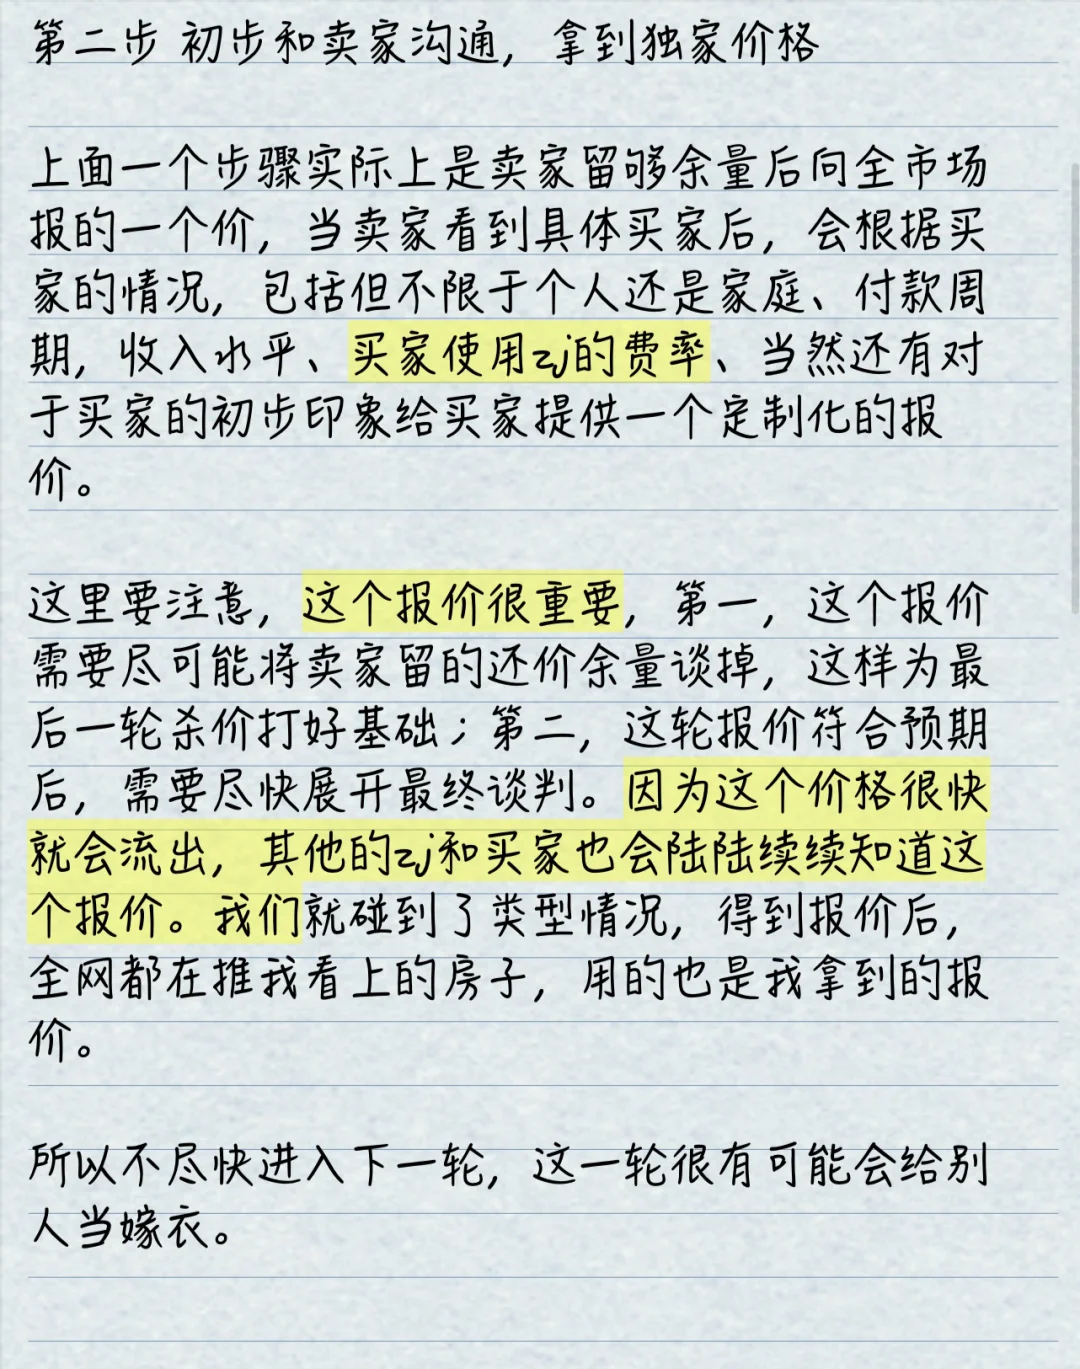 第二步 初步和卖家沟通，拿到独家价格
上面一个步骤实际上是卖家留够余量后向全市场
报的一个价，当卖家看到具体买家后，会根据买
家的情况，包括但不限于个人还是家庭、付款周
期，收入水平、买家使用zj的费率、当然还有对
于买家的初步印象给买家提供一个定制化的报
价。
这里要注意，这个报价很重要，第一，这个报价
需要尽可能将卖家留的还价余量谈掉，这样为最
后一轮杀价打好基础；第二，这轮报价符合预期
后，需要尽快展开最终谈判。因为这个价格很快
就会流出，其他的zj和买家也会陆陆续续知道这
个报价。我们就碰到了类型情况，得到报价后，
全网都在推我看上的房子，用的也是我拿到的报
价。
所以不尽快进入下一轮，这一轮很有可能会给别
人当嫁衣。